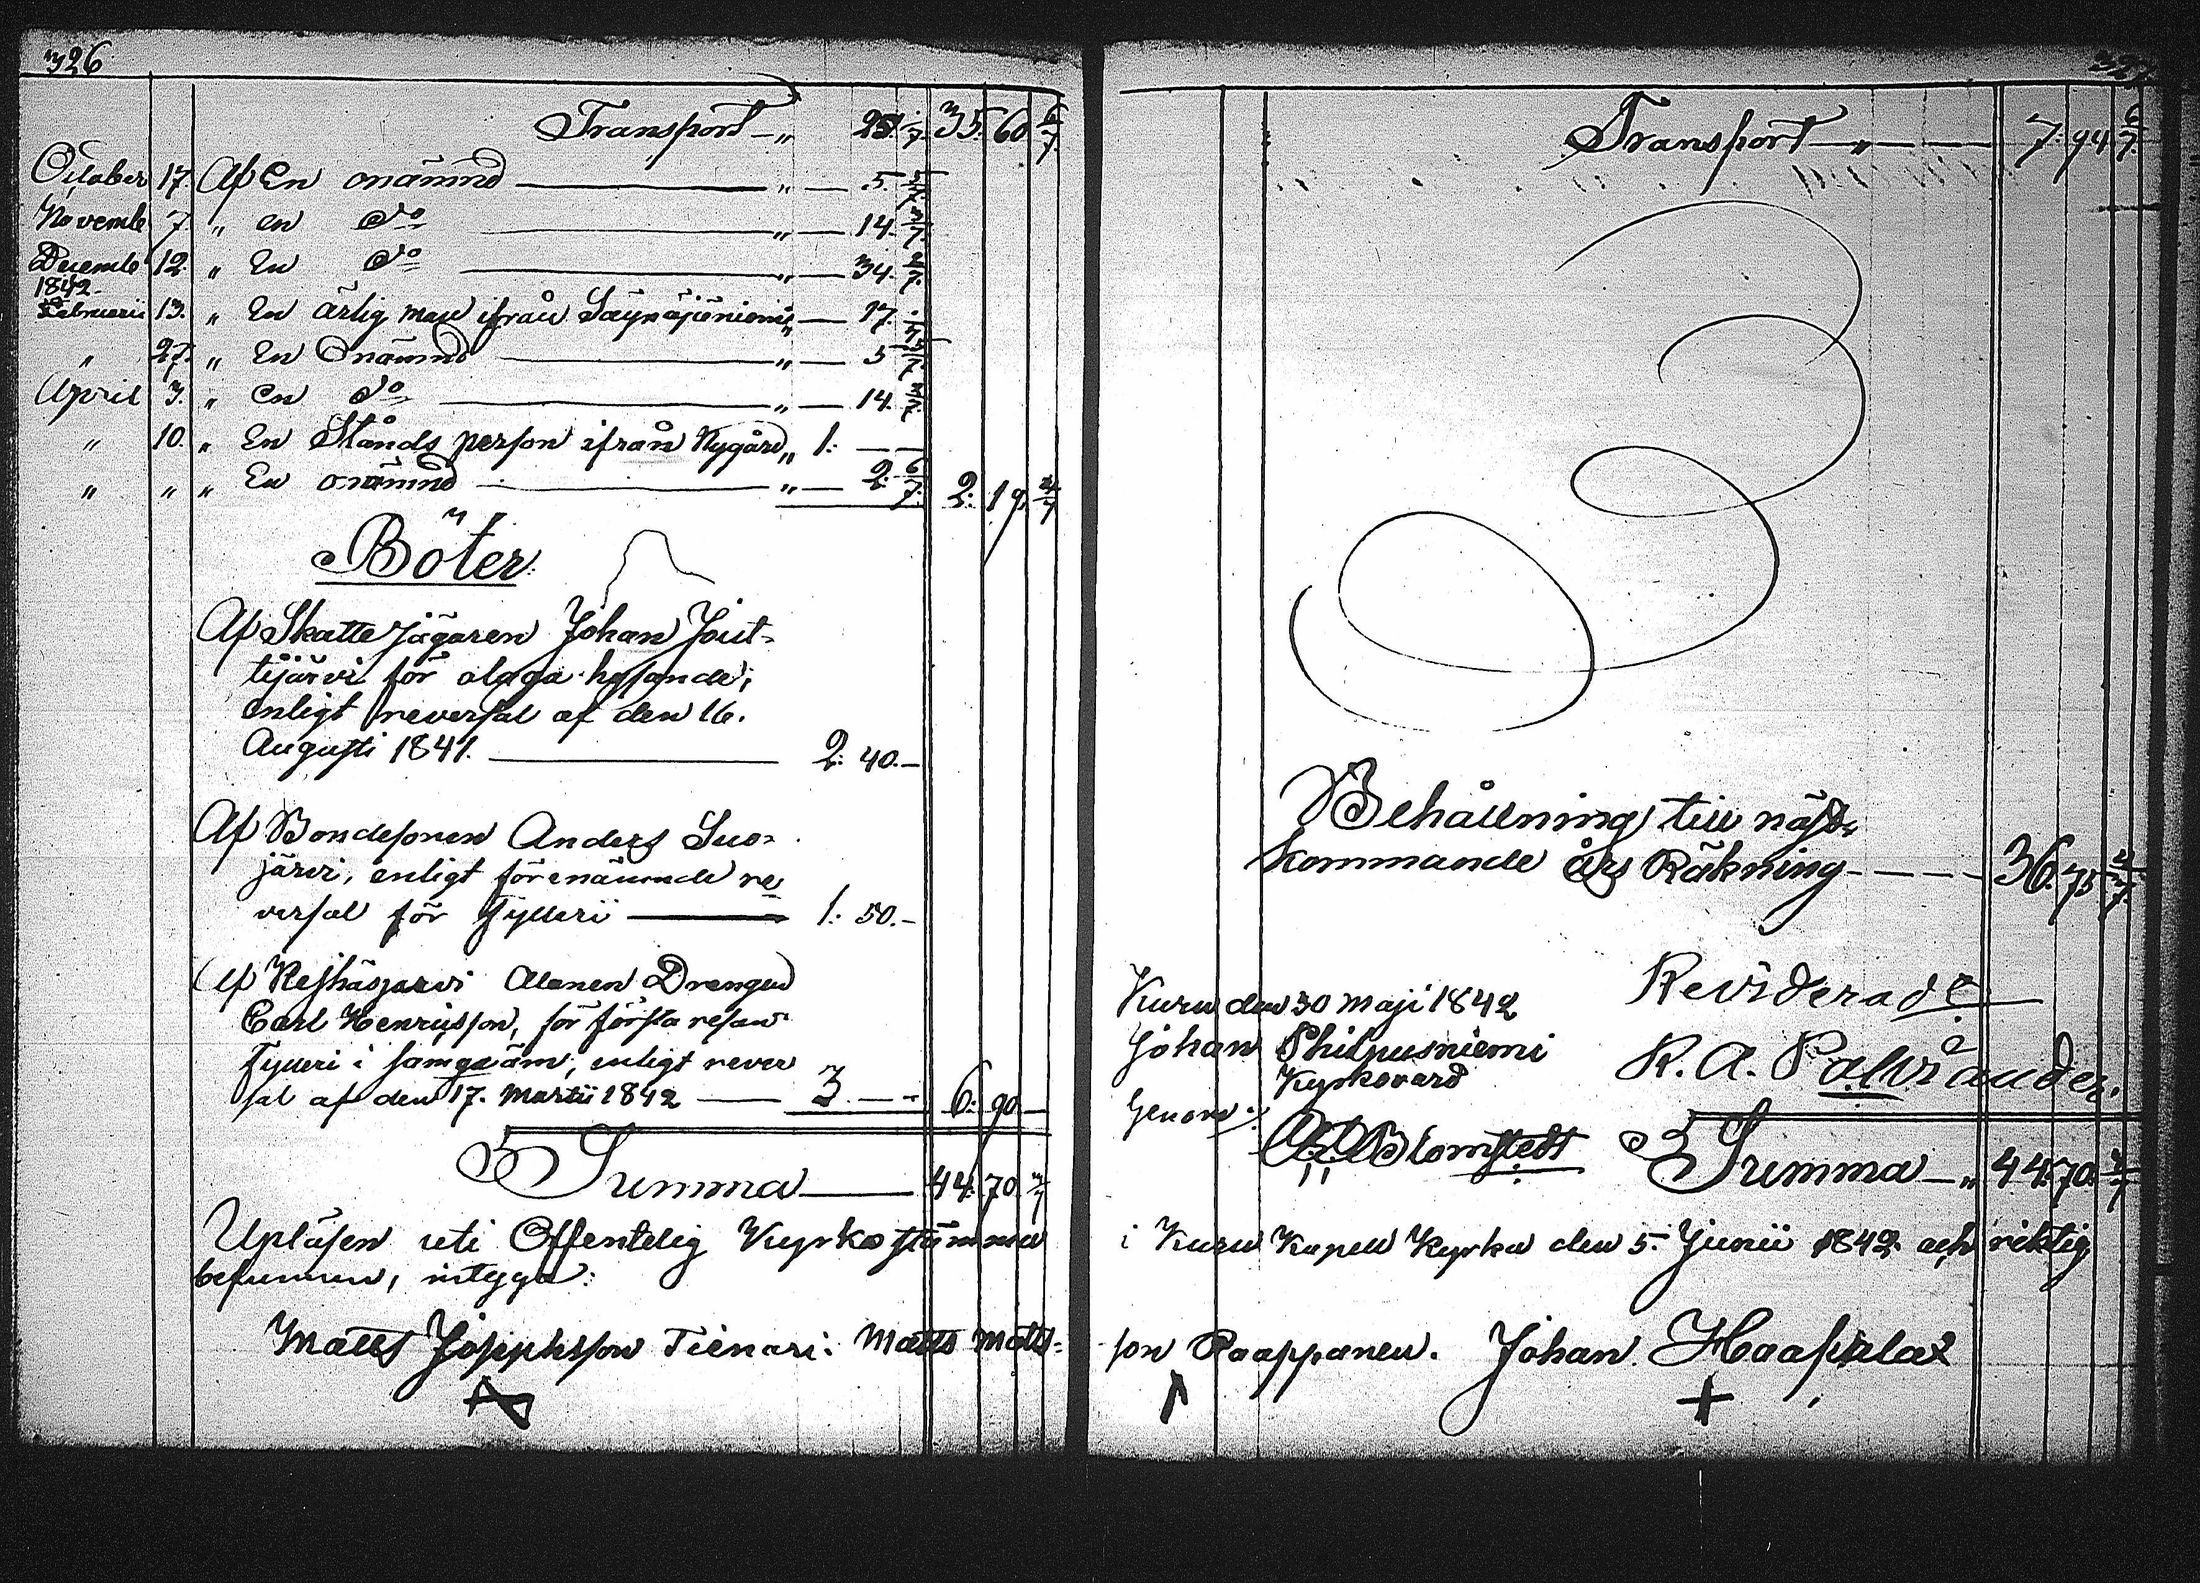 326
Transport — " 25 1/7 35. 60 6/7
October 17. Af En onämnd — " — 5. 5/7
Novemb 7. " en do — " — 14. 2/7
Decemb 12. " En do — " — 34. 2/7
1842.
Februarii 13. " En ärlig man ifrån — 17. 1/7
" 27. " En Onämnd — " — 5 5/7
April 3. " en do — " — 14. 2/7
" 10. " En Stånds person ifrån Nygård " 1: — —
" " " En onämnd — " — 2. 6/7 2. 19. 2/7
Böter.
Af Skatte Jägaren Johan Jout-
tijärvi för olaga hafande,
enligt reversal af den 16.
Augusti 1841. — 2. 40. —
Af Bondesonen Anders Suo-
järvi, enligt förenämnde re
versal för fylleri — 1. 50. —
Af Alanen Drengen
Carl Henricsson, för första resan
fylleri i enligt rever
sal af den 17. Martii 1842 — 3. — - 6. 90. —
Summa — 44. 70. 2/7
Upläsen uti Offentelig Kyrkostämma
befunnen, intyga:
Matts Josephsson Tienari. Matts Matts-
327.
Transport — " — 7. 94 6/7
Behållning till näst-
kommande års Räkning — 36. 75 2/7
Kuru den 30 Maji 1842
Reviderade
Johan Philpusniemi
Kyrkovärd
R. A. Palvrander.
Genom:
Blomstedt
Summa — " 44. 70. 2/7
i Kuru Kapell Kyrka den 5. Junii 1842. och riktig
son Paappanen. Johan Haapala
+